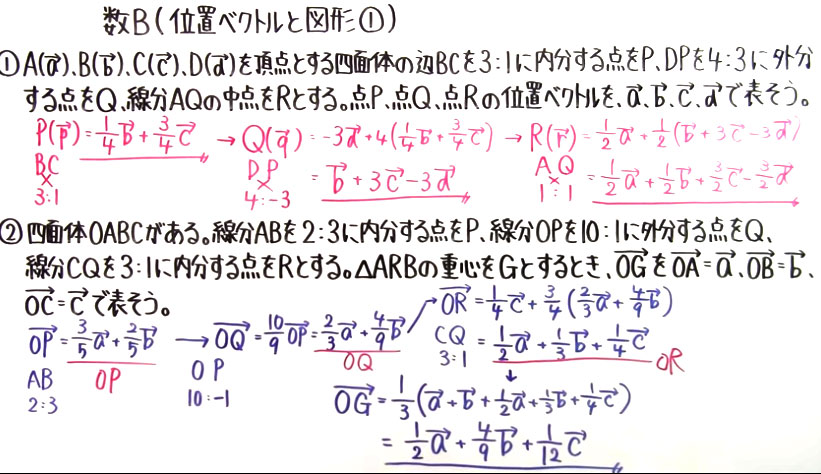 数B(位置ベクトルと図形①)
①A(a⃗)、B(b⃗)、C(c⃗)、D(d⃗)を頂点とする四面体の辺BCを3:1に内分する点をP、DPを4:3に外分
する点をQ、線分AQの中点をRとする。点P、点Q、点Rの位置ベクトルを、a⃗、b⃗、c⃗、d⃗で表そう。
P(p⃗)=1/4b⃗+3/4c⃗ → Q(q⃗)=-3d⃗+4(1/4b⃗+3/4c⃗) → R(r⃗)=1/2a⃗+1/2(b⃗+3c⃗-3d⃗)
BC × 3:1
DP × 4:-3 =b⃗+3c⃗-3d⃗
AQ × 1:1 =1/2a⃗+1/2b⃗+3/2c⃗-3/2d⃗
②四面体OABCがある。線分ABを2:3に内分する点をP、線分OPを10:1に外分する点をQ、
線分CQを3:1に内分する点をRとする。△ARBの重心をGとするとき、OG⃗をOA⃗=a⃗、OB⃗=b⃗、
OC⃗=c⃗で表そう。
OP⃗=3/5a⃗+2/5b⃗ → OQ⃗=10/9OP⃗=2/3a⃗+4/9b⃗ → OR⃗=1/4c⃗+3/4(2/3a⃗+4/9b⃗)
AB 2:3 OP
OP 10:-1 OQ
CQ 3:1 =1/2a⃗+1/3b⃗+1/4c⃗ OR
↓
OG⃗=1/3(a⃗+b⃗+1/2a⃗+1/3b⃗+1/4c⃗)
=1/2a⃗+4/9b⃗+1/12c⃗